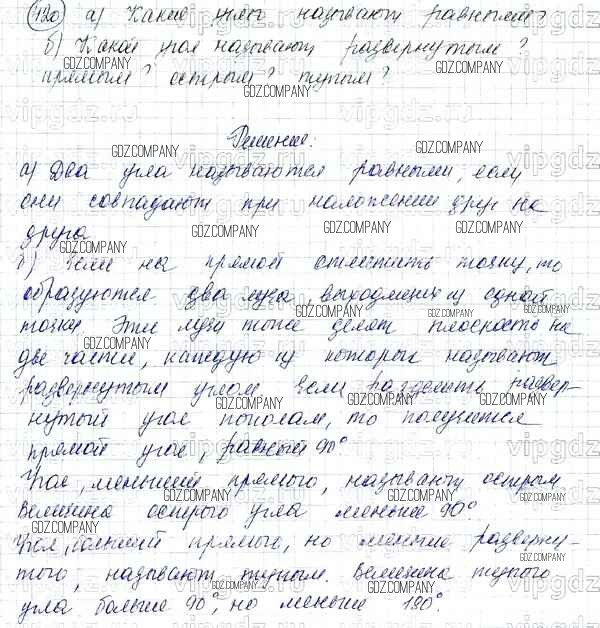 120) а) Какие углы называют равными?
б) Какой угол называют развернутым?
прямым? острым? тупым?
Решение:
а) Два угла называются равными, если
они совпадают при наложении друг на
друга
б) Если на прямой отметить точку, то
образуются два луча, выходящие из одной
точки Эти лучи тоже делят плоскость на
две части, каждую из которых называют
развернутым углом Если разделить развер-
нутый угол пополам, то получится
прямой угол, равный 90°
Угол, меньший прямого, называют острым
Величина острого угла меньше 90°.
Угол, больший прямого, но меньше разверну-
того, называют тупым. Величина тупого
угла больше 90°, но меньше 180°.
GDZ.COMPANY
vipgdz.ru